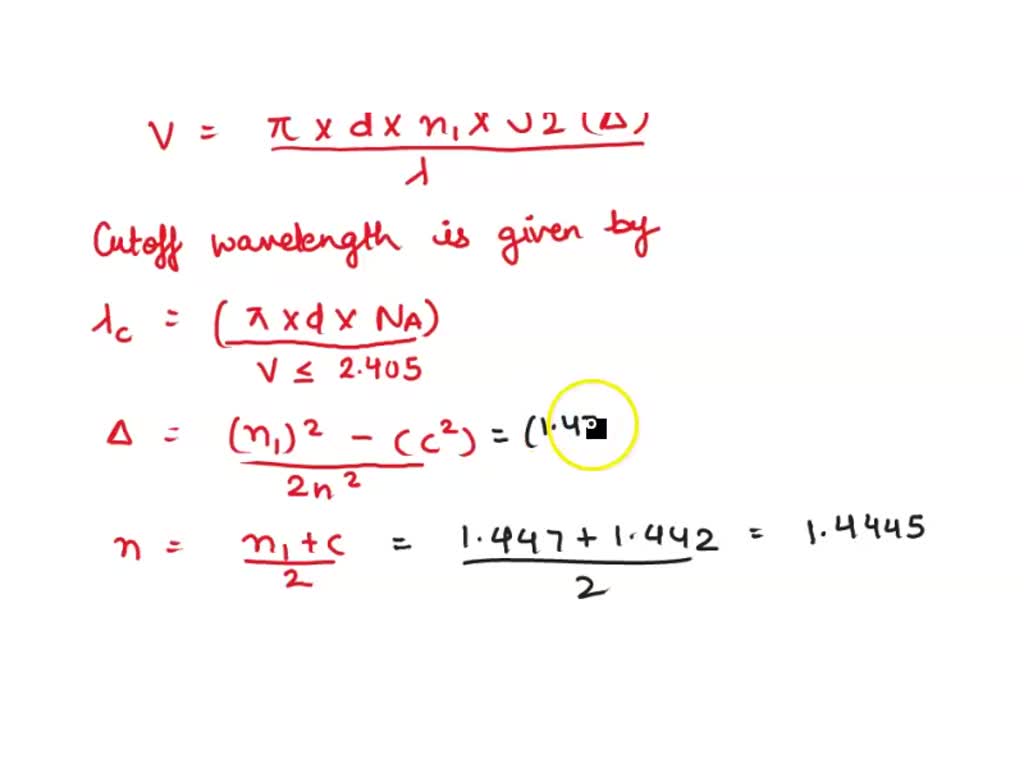 V = π x d x n₁ x √2 (Δ)
λ
Cutoff wavelength is given by
λc = (π x d x NA)
V ≤ 2.405
Δ = (n₁)² - (c²) = (1.4
2n²
n = n₁ + c = 1.447 + 1.442 = 1.4445
2 2